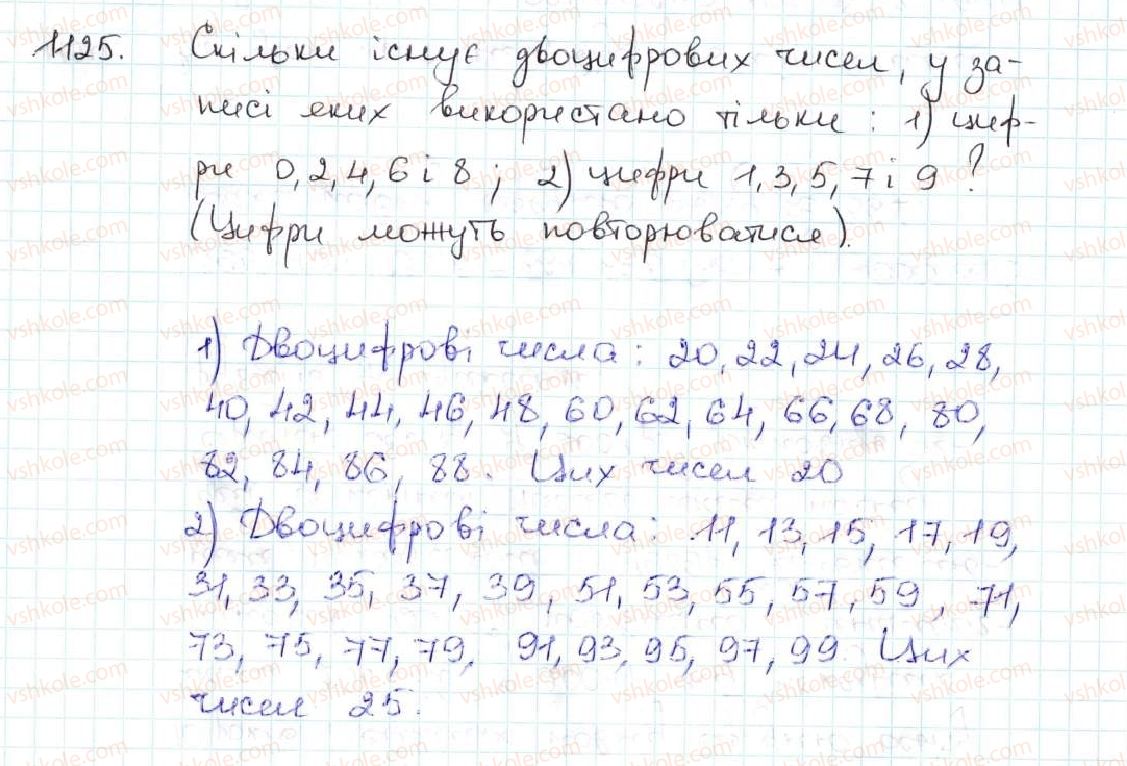 1125. Скільки існує двоцифрових чисел, у за-
писі яких використано тільки: 1) циф-
ри 0, 2, 4, 6 і 8; 2) цифри 1, 3, 5, 7 і 9?
(Цифри можуть повторюватися).
1) Двоцифрові числа: 20, 22, 24, 26, 28,
40, 42, 44, 46, 48, 60, 62, 64, 66, 68, 80,
82, 84, 86, 88. Цих чисел 20
2) Двоцифрові числа: 11, 13, 15, 17, 19,
31, 33, 35, 37, 39, 51, 53, 55, 57, 59, 71,
73, 75, 77, 79, 91, 93, 95, 97, 99. Цих
чисел 25.
vshkole.com